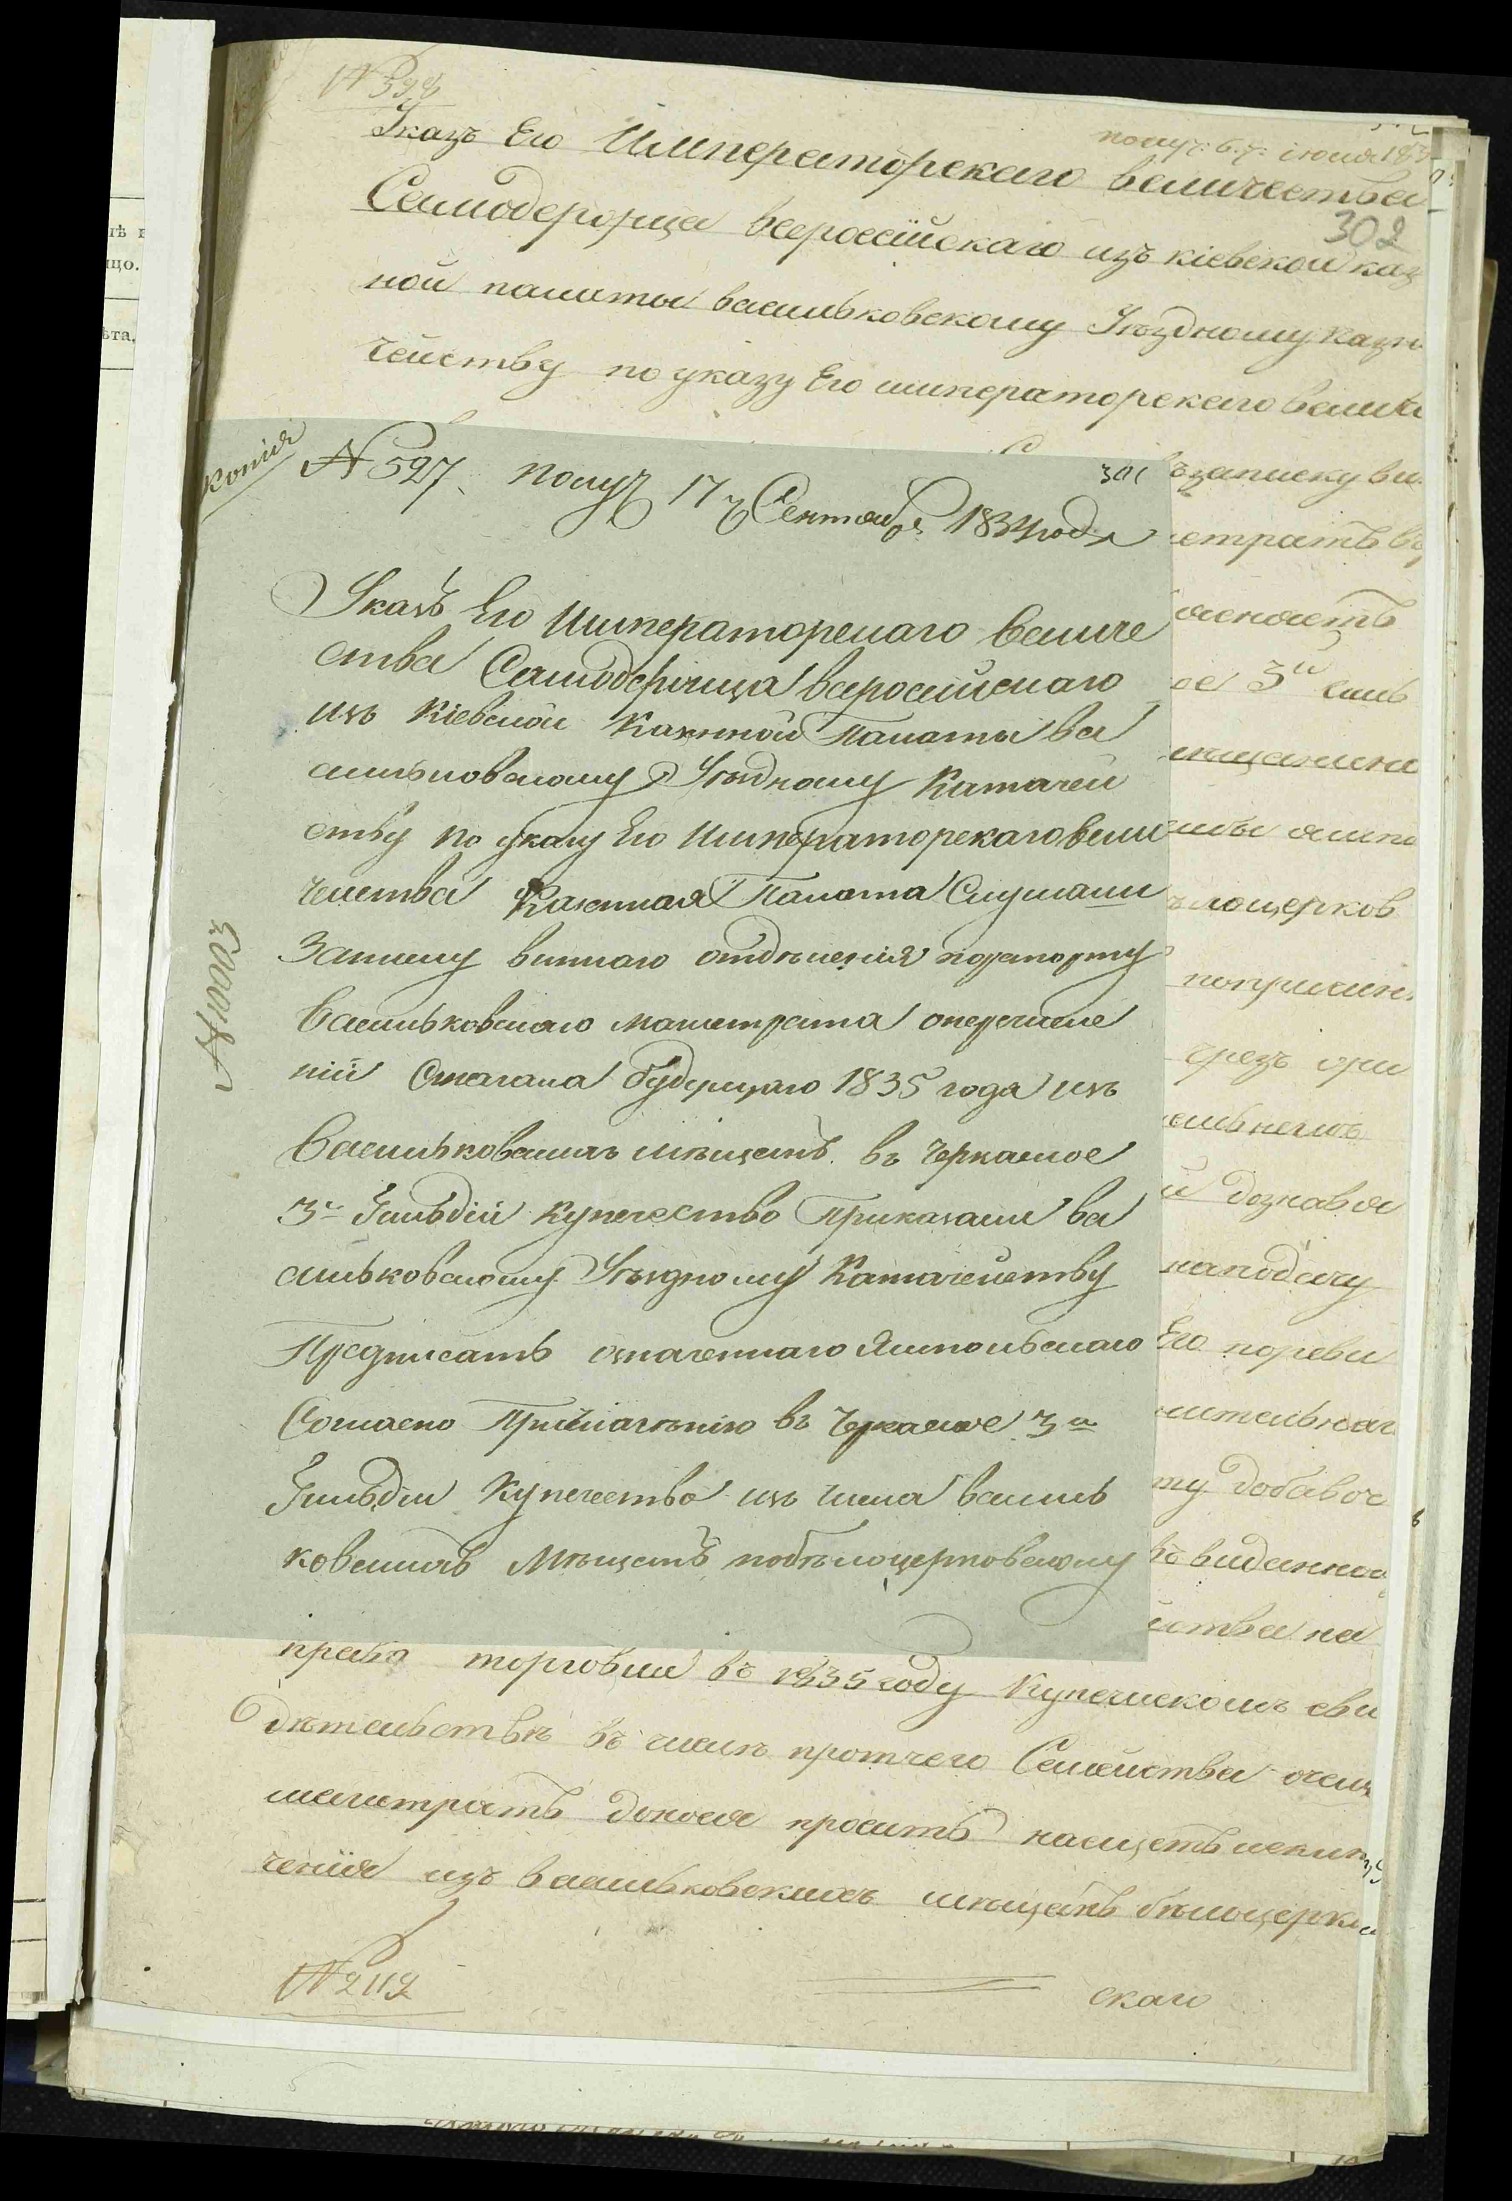 № 398
получ: 6. г. іюля 183
302
Указъ Его Императорскаго величества
Самодержца всероссійскаго изъ кіевской каз
ной палаты васильковскому Уѣздному казн
чейству по указу Его императорскаго вели
ъзаписку ви
Копія
№ 527. Получ 17 г Сентябр. 1834 года
301
Указъ Его Императорскаго величе
ства Самодержица всеросийскаго
изъ Кіевской Казнной Палаты ва
сильковскому Уѣздному Казначей
ству по указу Его Императорскаго вели
чества Казенная Палата Слушали
Записку виннаго отдѣленія порапорту
Васильковскаго магистрата оперечисле
ніи Сначала будущаго 1835 года изъ
Васильковскихъ мѣщанъ въ Черкаское
3й Гильдіи купечество Приказали ва
сильковскому Уѣздному Казначейству
Предписать означеннаго Ямпольскаго
Согласно Прилагѣнію въ Черкаское 3й
Гильдіи Купечество изъ числа василь
ковскихъ Мѣщанъ побѣлоцерковскому
№ 10003
истратъ въ
ясняетъ
ое 3й гиль
ѣщанина
ямпо
лоцерков
попричин
чрезъ
дознався
наподачу
Его пореви
нительнаг
ту добавоч
въ виданном
ства на
право торговли въ 1835 году Купеческомъ сви
дѣтельствѣ въ числѣ протчего Семейства очем
магистратъ донося проситъ насщетъ исклю
ченія изъ васильковскихъ мѣщанъ бѣлоцеркв
№ 2112
скаго